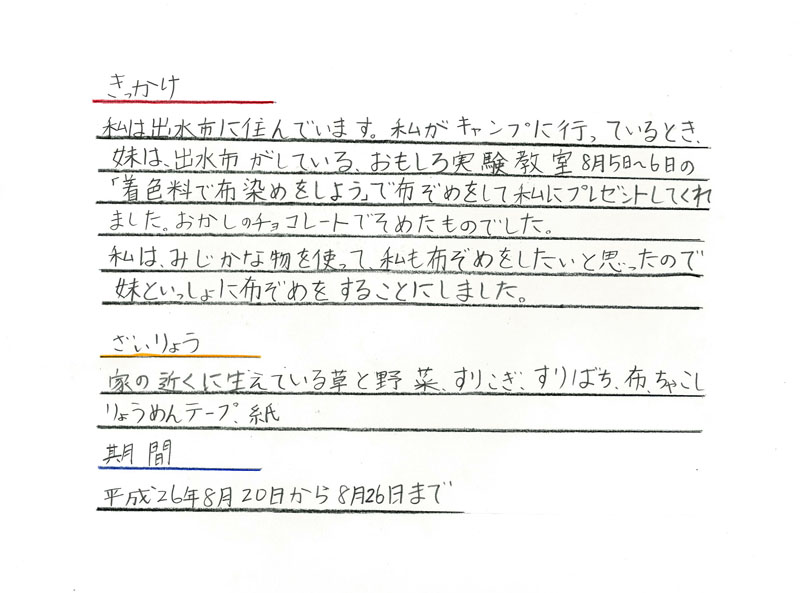 きっかけ
私は出水市に住んでいます。私がキャンプに行っているとき、
妹は、出水市がしている、おもしろ実験教室8月5日〜6日の
「着色料で布染めをしよう」で布ぞめをして私にプレゼントしてくれ
ました。おかしのチョコレートでそめたものでした。
私は、みじかな物を使って、私も布ぞめをしたいと思ったので
妹といっしょに布ぞめをすることにしました。
ざいりょう
家の近くに生えている草と野菜、すりこぎ、すりばち、布、ちゃこし
りょうめんテープ、紙
期間
平成26年8月20日から8月26日まで